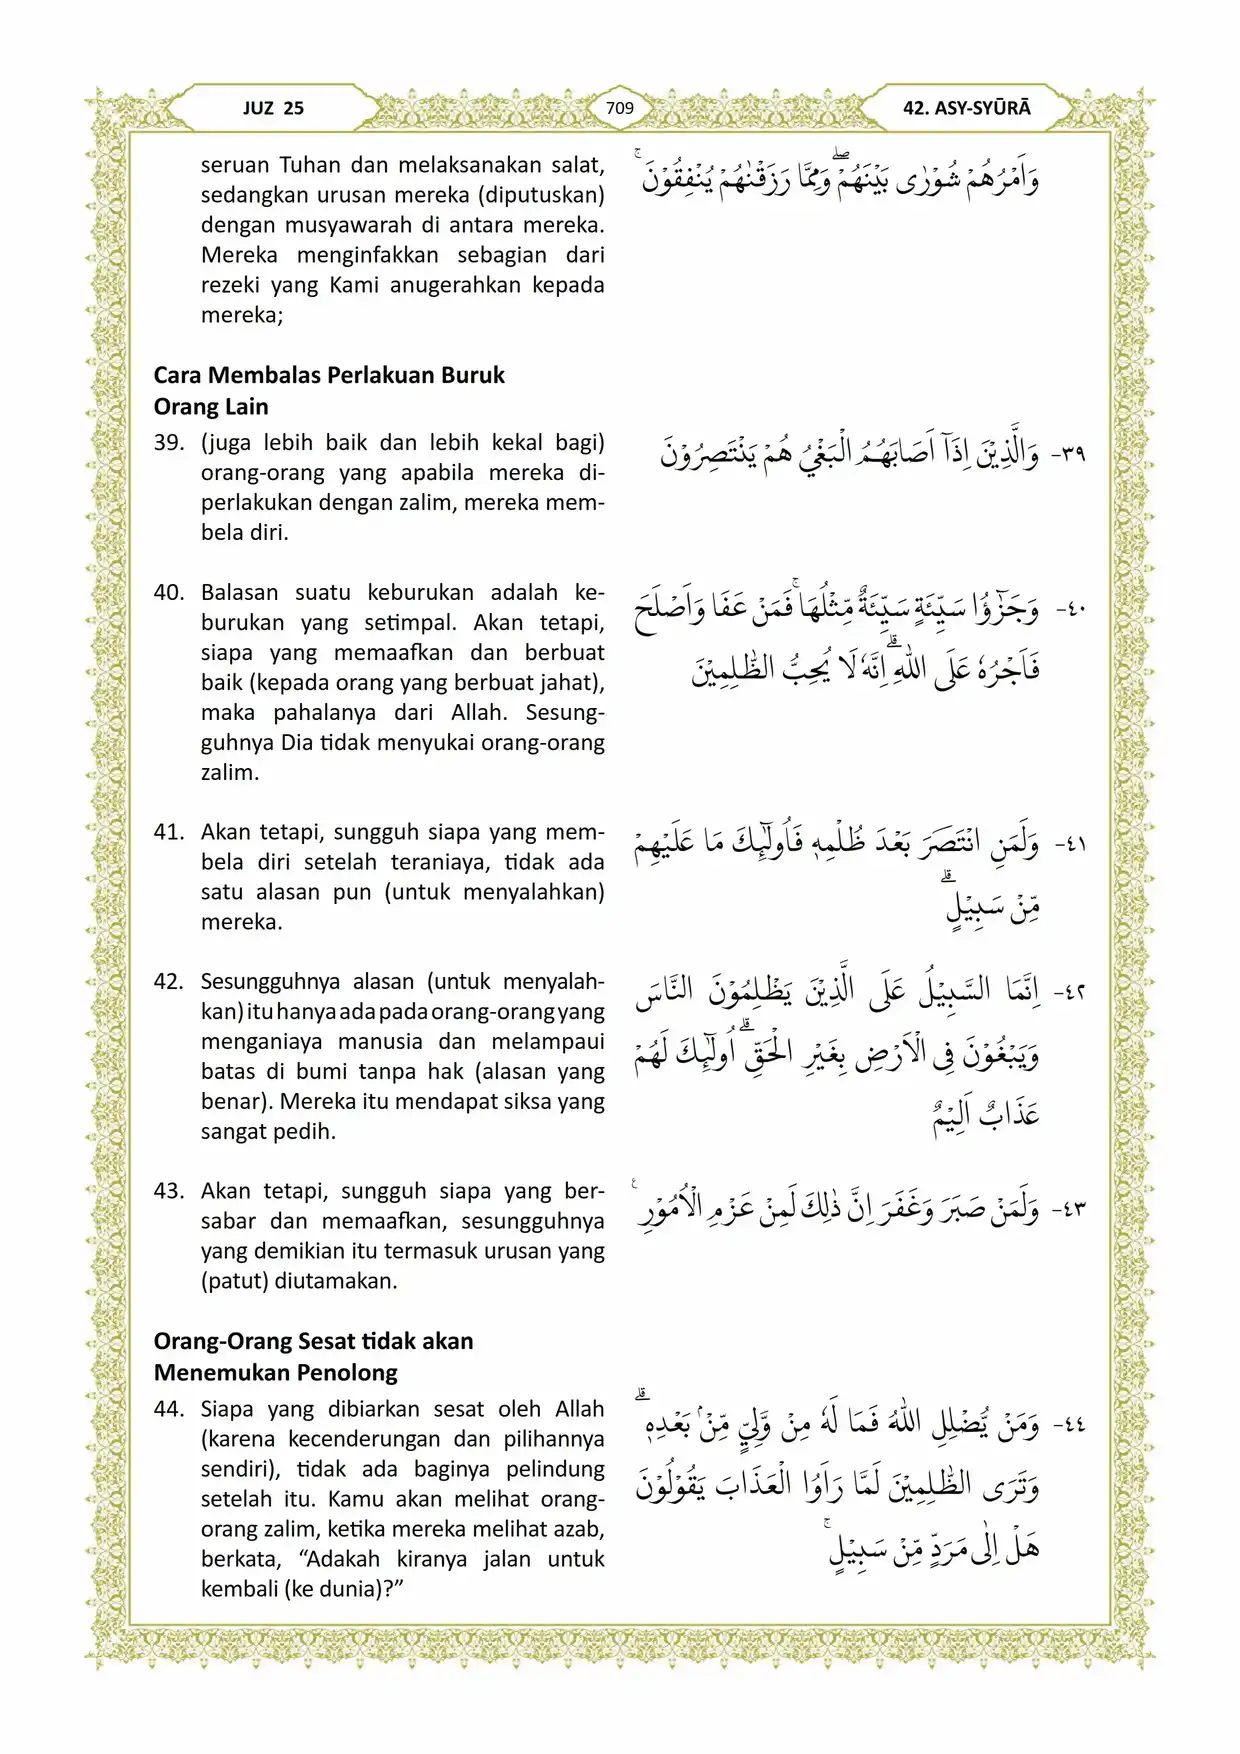 JUZ 25
709
42. ASY-SYŪRĀ
seruan Tuhan dan melaksanakan salat,
sedangkan urusan mereka (diputuskan)
dengan musyawarah di antara mereka.
Mereka menginfakkan sebagian dari
rezeki yang Kami anugerahkan kepada
mereka;
وَاَمْرُهُمْ شُوْرٰى بَيْنَهُمْۖ وَمِمَّا رَزَقْنٰهُمْ يُنْفِقُوْنَ ۚ
Cara Membalas Perlakuan Buruk
Orang Lain
39. (juga lebih baik dan lebih kekal bagi)
orang-orang yang apabila mereka di-
perlakukan dengan zalim, mereka mem-
bela diri.
٣٩- وَالَّذِيْنَ اِذَآ اَصَابَهُمُ الْبَغْيُ هُمْ يَنْتَصِرُوْنَ
40. Balasan suatu keburukan adalah ke-
burukan yang setimpal. Akan tetapi,
siapa yang memaafkan dan berbuat
baik (kepada orang yang berbuat jahat),
maka pahalanya dari Allah. Sesung-
guhnya Dia tidak menyukai orang-orang
zalim.
٤٠- وَجَزٰۤؤُا سَيِّئَةٍ سَيِّئَةٌ مِّثْلُهَا ۚفَمَنْ عَفَا وَاَصْلَحَ
فَاَجْرُهٗ عَلَى اللّٰهِ ۗاِنَّهٗ لَا يُحِبُّ الظّٰلِمِيْنَ
41. Akan tetapi, sungguh siapa yang mem-
bela diri setelah teraniaya, tidak ada
satu alasan pun (untuk menyalahkan)
mereka.
٤١- وَلَمَنِ انْتَصَرَ بَعْدَ ظُلْمِهٖ فَاُولٰۤىِٕكَ مَا عَلَيْهِمْ
مِّنْ سَبِيْلٍۗ
42. Sesungguhnya alasan (untuk menyalah-
kan) itu hanya ada pada orang-orang yang
menganiaya manusia dan melampaui
batas di bumi tanpa hak (alasan yang
benar). Mereka itu mendapat siksa yang
sangat pedih.
٤٢- اِنَّمَا السَّبِيْلُ عَلَى الَّذِيْنَ يَظْلِمُوْنَ النَّاسَ
وَيَبْغُوْنَ فِى الْاَرْضِ بِغَيْرِ الْحَقِّۗ اُولٰۤىِٕكَ لَهُمْ
عَذَابٌ اَلِيْمٌ
43. Akan tetapi, sungguh siapa yang ber-
sabar dan memaafkan, sesungguhnya
yang demikian itu termasuk urusan yang
(patut) diutamakan.
٤٣- وَلَمَنْ صَبَرَ وَغَفَرَ اِنَّ ذٰلِكَ لَمِنْ عَزْمِ الْاُمُوْرِ ࣖ
Orang-Orang Sesat tidak akan
Menemukan Penolong
44. Siapa yang dibiarkan sesat oleh Allah
(karena kecenderungan dan pilihannya
sendiri), tidak ada baginya pelindung
setelah itu. Kamu akan melihat orang-
orang zalim, ketika mereka melihat azab,
berkata, “Adakah kiranya jalan untuk
kembali (ke dunia)?”
٤٤- وَمَنْ يُّضْلِلِ اللّٰهُ فَمَا لَهٗ مِنْ وَّلِيٍّ مِّنْۢ بَعْدِهٖ ۗ
وَتَرَى الظّٰلِمِيْنَ لَمَّا رَاَوُا الْعَذَابَ يَقُوْلُوْنَ
هَلْ اِلٰى مَرَدٍّ مِّنْ سَبِيْلٍۚ